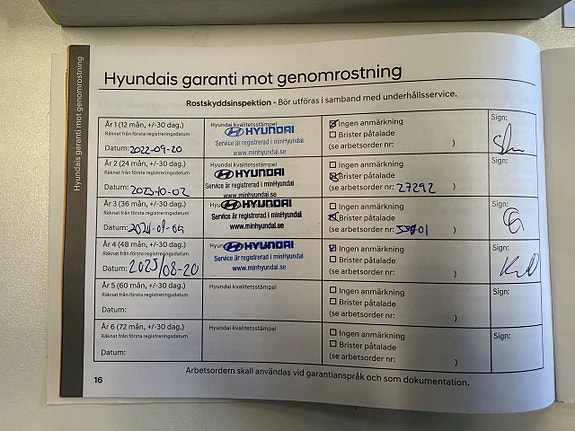 Hyundais garanti mot genomrostning
Hyundais garanti mot genomrostning
Rostskyddsinspektion - Bör utföras i samband med underhållsservice.
År 1 (12 mån, +/-30 dag.)
Räknat från första registreringsdatum
Datum: 2022-09-20
Hyundai kvalitetsstämpel
HYUNDAI
Service är registrerad i minHyundai
www.minhyundai.se
Ingen anmärkning
Brister påtalade
(se arbetsorder nr: )
Sign:
År 2 (24 mån, +/-30 dag.)
Räknat från första registreringsdatum
Datum: 2023-10-02
Hyundai kvalitetsstämpel
HYUNDAI
Service är registrerad i minHyundai
www.minhyundai.se
Ingen anmärkning
Brister påtalade
(se arbetsorder nr: 27292 )
Sign:
År 3 (36 mån, +/-30 dag.)
Räknat från första registreringsdatum
Datum: 2024-09-05
HYUNDAI
Service är registrerad i minHyundai
www.minhyundai.se
Ingen anmärkning
Brister påtalade
(se arbetsorder nr: )
Sign:
År 4 (48 mån, +/-30 dag.)
Räknat från första registreringsdatum
Datum: 2025/08-20
Hyundai kvalitetsstämpel
HYUNDAI
Service är registrerad i minHyundai
www.minhyundai.se
Ingen anmärkning
Brister påtalade
(se arbetsorder nr: )
Sign:
År 5 (60 mån, +/-30 dag.)
Räknat från första registreringsdatum
Datum:
Hyundai kvalitetsstämpel
Ingen anmärkning
Brister påtalade
(se arbetsorder nr: )
Sign:
År 6 (72 mån, +/-30 dag.)
Räknat från första registreringsdatum
Datum:
Hyundai kvalitetsstämpel
Ingen anmärkning
Brister påtalade
(se arbetsorder nr: )
Sign:
16
Arbetsordern skall användas vid garantianspråk och som dokumentation.